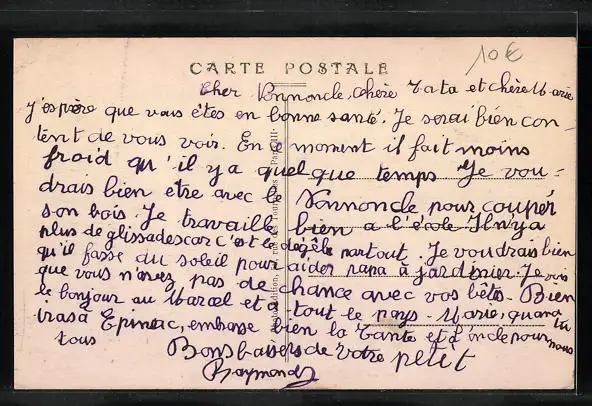 10€
CARTE POSTALE
Cher Nonnoncle, chère Tata et chère Marie
J'espère que vous êtes en bonne santé. Je serai bien con-
tent de vous voir. En ce moment il fait moins
froid qu'il y a quelque temps Je vou-
drais bien etre avec le Nonnoncle pour couper
son bois. Je travaille bien a l'école. Il n'y a
plus de glissades car c'est le dégêle partout. Je voudrais bien
qu'il fasse du soleil pour aider papa à jardinier. Je vois
que vous n'avez pas de chance avec vos bêtes. Bien
le bonjour au Marcel et a tout le pays. Marie, quand tu
iras à Epinac, embasse bien la Tante et l'oncle pour nous
tous
Bons baisers de votre petit
Raymond